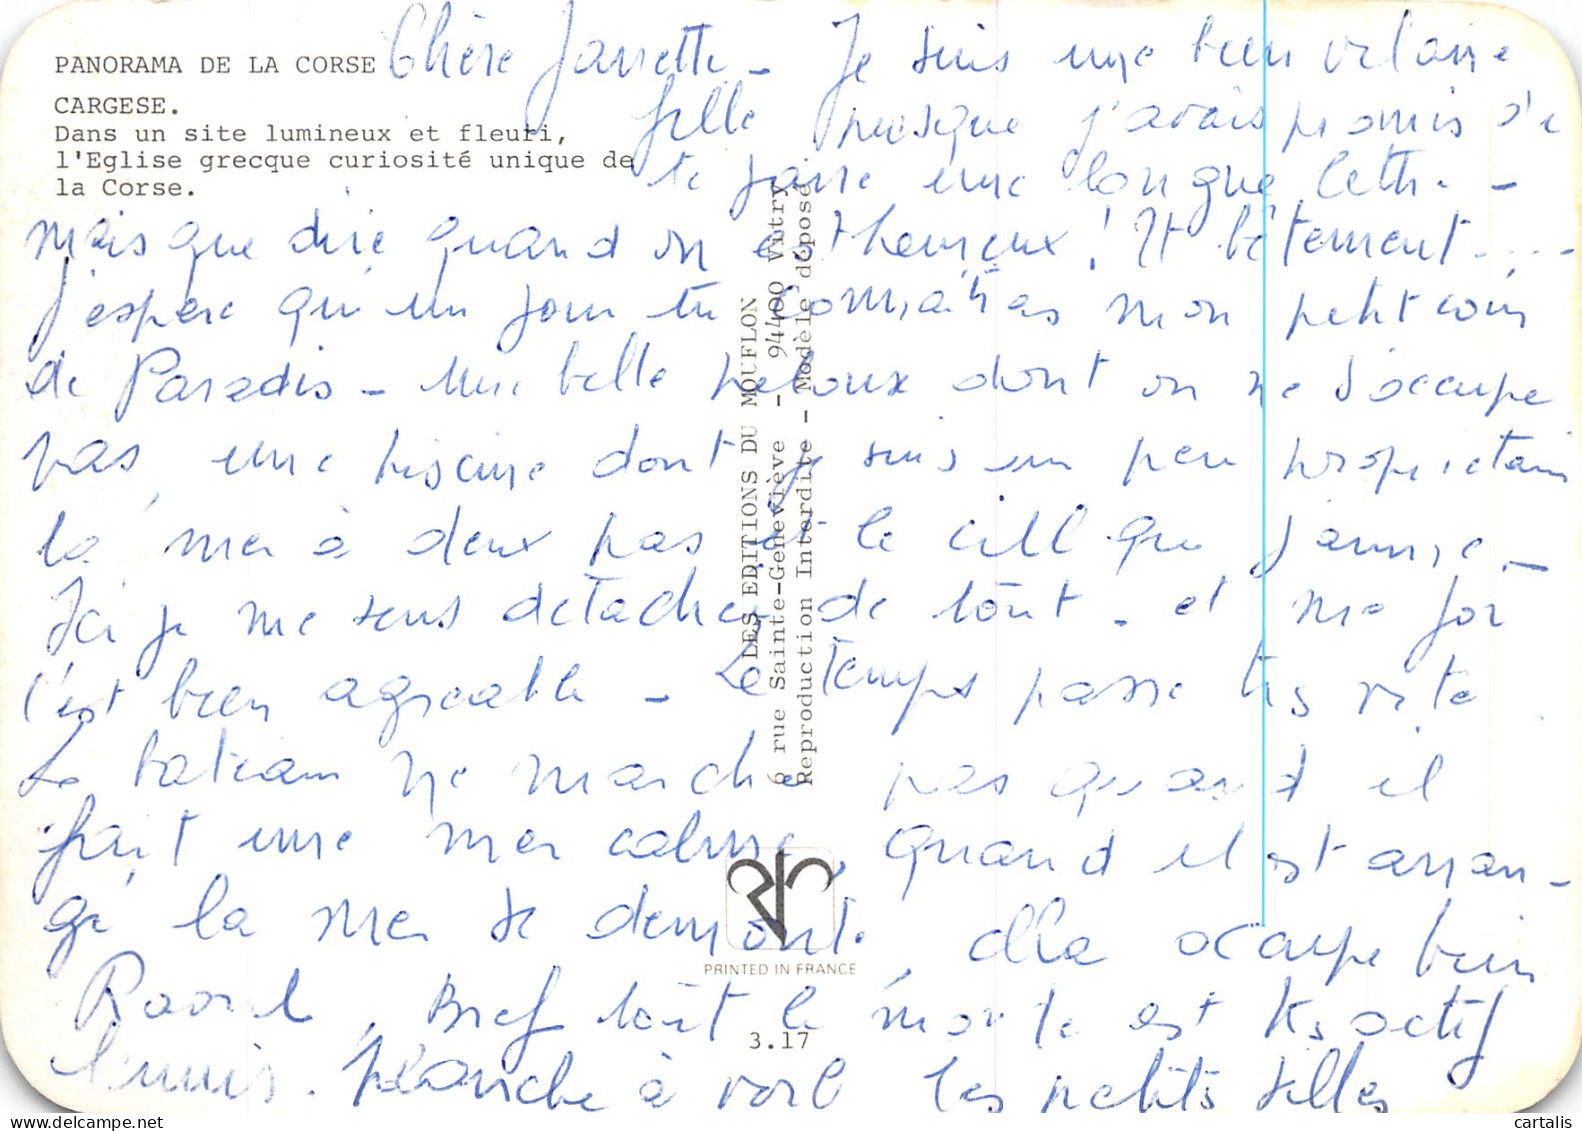 PANORAMA DE LA CORSE
CARGESE.
Dans un site lumineux et fleuri,
l'Eglise grecque curiosité unique de
la Corse.
Chère Jannette - Je suis une bien vilaine
fille presque j'avais promis de
te faire une longue lettre -
mais que dire quand on est heureux ! Et bêtement ....
J'espere qu'un jour tu connaîtras mon petit coin
de Paradis - Une belle pelouse dont on ne s'occupe
pas, une piscine dont je suis un peu proprietaire
la mer à deux pas et le ciel que j'aime -
Ici je me sens detachée de tout - et ma foi
c'est bien agreable - Le temps passe très vite
Le bateau ne marche pas quand il
fait une mer calme, quand il est arran-
gé la mer se demonte, ella occupe bien
Raoul, Bref tout le monde est très actif
Planche à voile les petites filles
LES EDITIONS DU MOUFLON
6 rue Sainte-Geneviève - 94400 Vitry
Reproduction Interdite - Modèle déposé
PRINTED IN FRANCE
3.17
cartalis